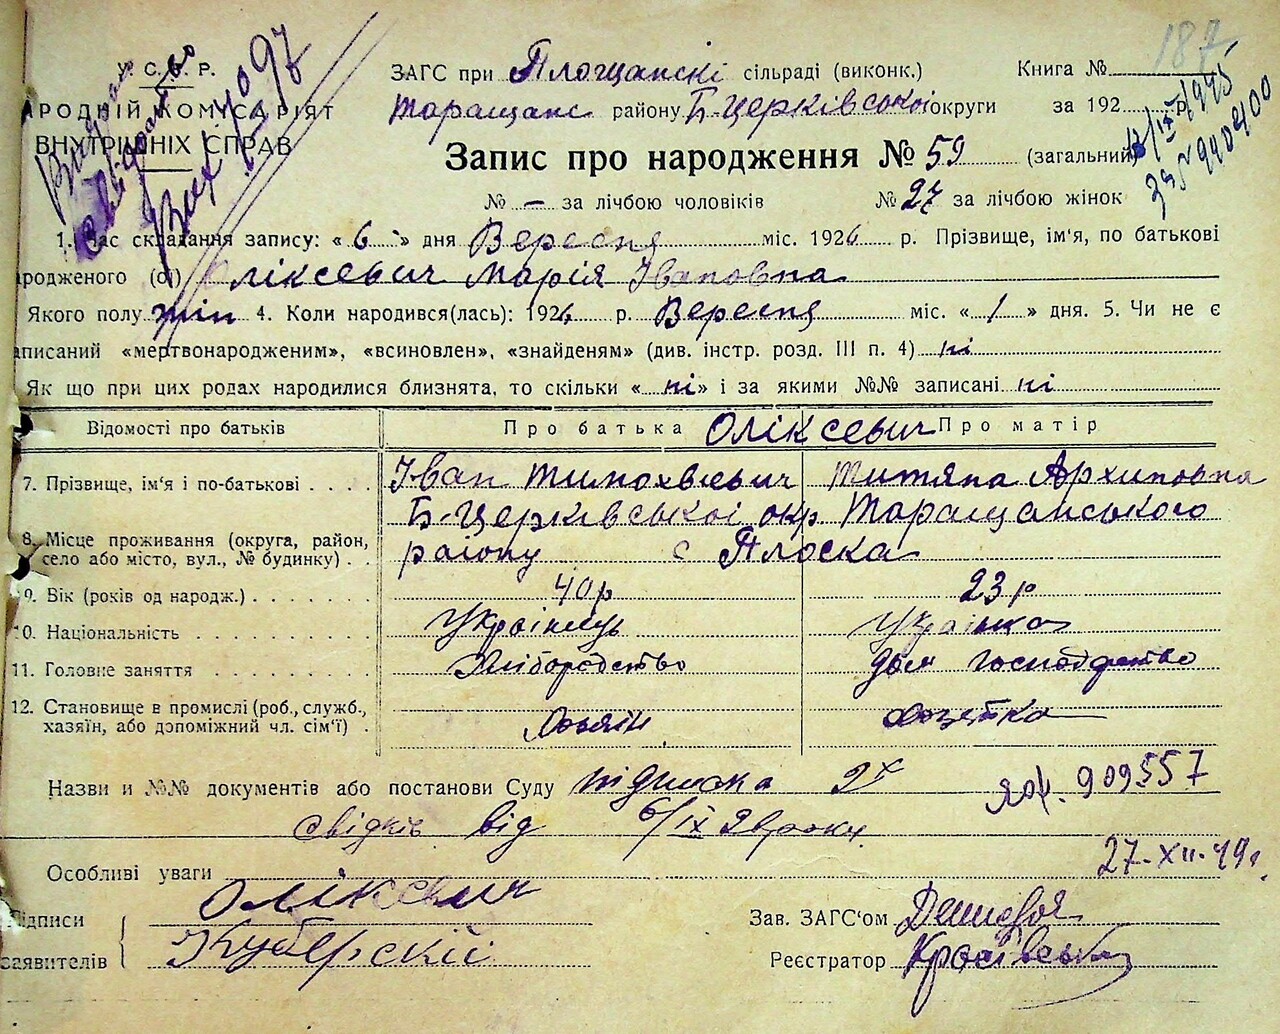 187
У. С. Р. Р.
АРОДНІЙ КОМІСАРІЯТ
ВНУТРІШНІХ СПРАВ
Вих 4097
ЗАГС при Площанскі сільраді (виконк.) Книга №
Таращанс району Б-Церківської округи за 192 р.
Запис про народження № 59 (загальний)
№ — за лічбою чоловіків № 27 за лічбою жінок
1. Час складання запису: « 6 » дня Вересня міс. 1926 р. Прізвище, ім'я, по батькові
родженого (ої) Оліксевич Марія Івановна
Якого полу жін 4. Коли народився(лась): 1926 р. Вересня міс. « 1 » дня. 5. Чи не є
аписаний «мертвонародженим», «всиновлен», «знайденям» (див. інстр. розд. III п. 4) ні
Як що при цих родах народилися близнята, то скільки « ні » і за якими №№ записані ні
Відомості про батьків Про батька Оліксевич Про матір
7. Прізвище, ім'я і по-батькові Іван Тимохвієвич Титяна Архиповна
8. Місце проживання (округа, район, село або місто, вул., № будинку) Б-Церківської окр. Таращанського
району с Плоска
9. Вік (років од народж.) 40 р 23 р
10. Національність Українець Українка
11. Головне заняття Хліборобство Дом господарство
12. Становище в промислі (роб., служб., хазяїн, або допоміжний чл. сім'ї) Хазяїн
Назви и №№ документів або постанови Суду підписка 2х 909557
свідків від 6/IX 26 року
27-XII-49 г.
Особливі уваги
Підписи заявителів Оліксевич
Куберскій
Зав. ЗАГС'ом
Реєстратор